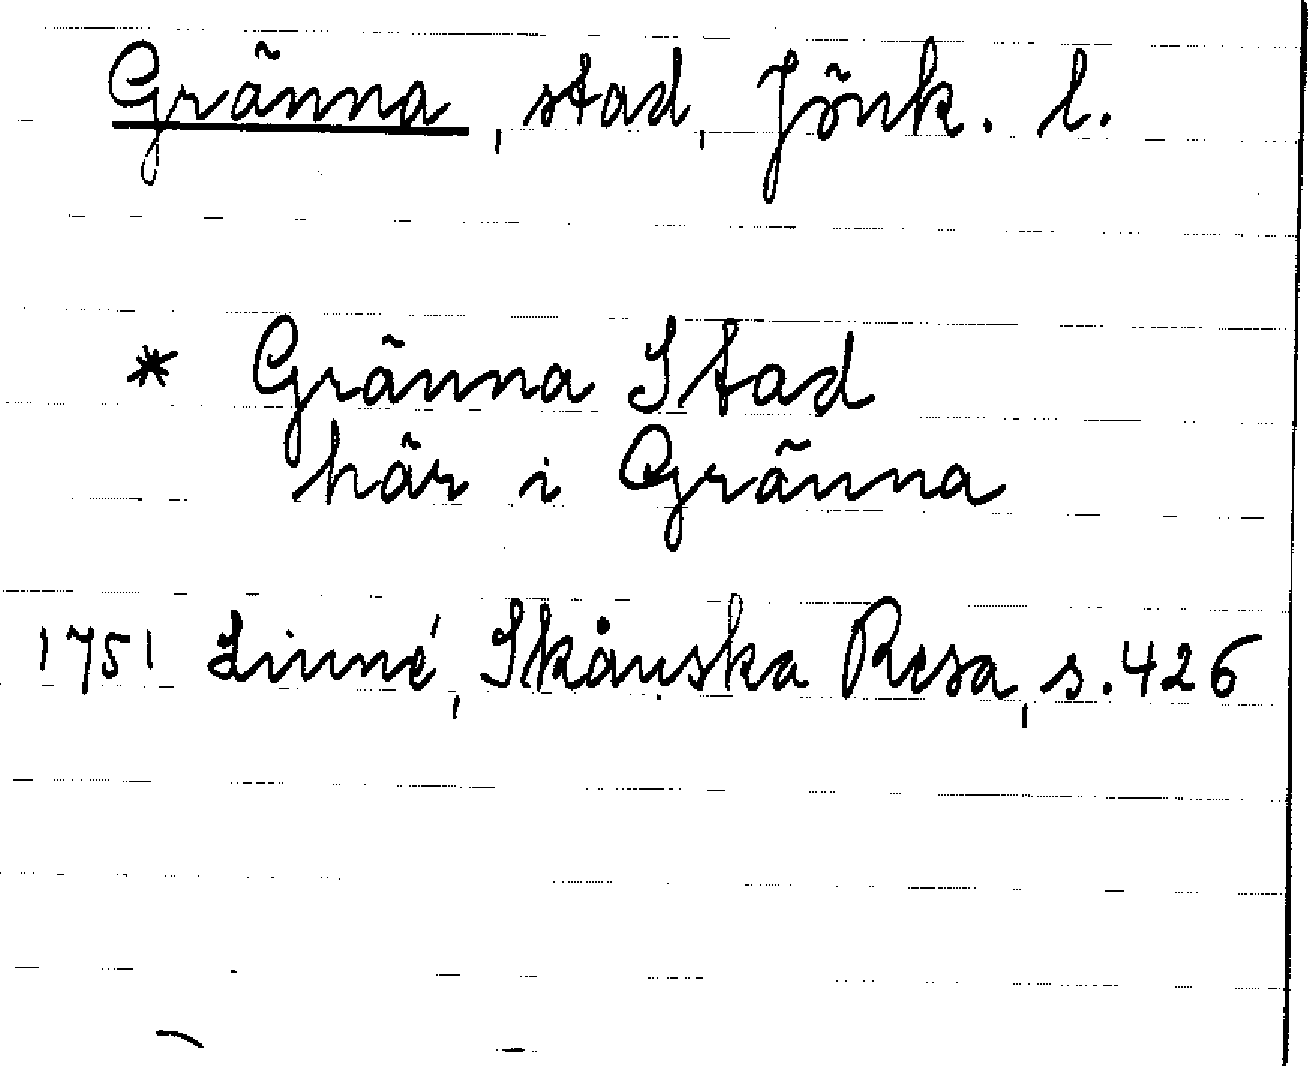 Gränna, stad, Jönk. l.
* Gränna Stad
här i Gränna
1751 Linné, Skånska Resa, s. 426